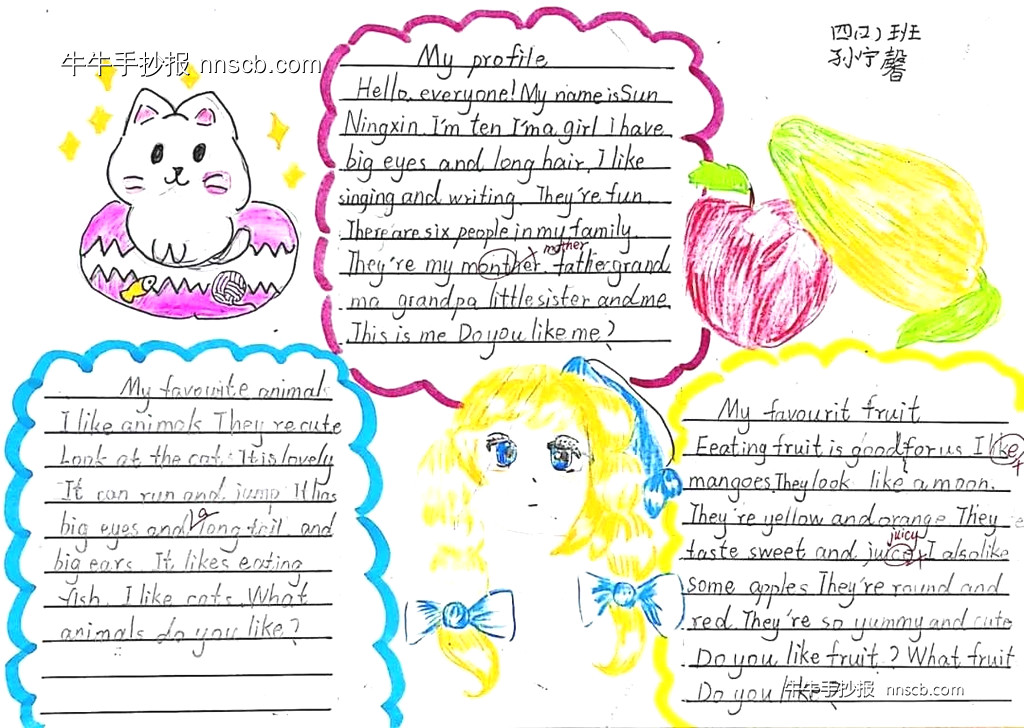 牛牛手抄报 nnscb.com
四(2)班
孙宁馨
My profile
Hello, everyone! My name is Sun
Ningxin I'm ten I'm a girl i have
big eyes and long hair. I like
singing and writing. They're fun
There are six people in my family.
They're my monther. father grand
mother
ma grandpa little sister and me.
This is me Do you like me?
My favourite animals
I like animals They're cute
Look at the cat. It is lovely
It can run and jump. It has
big eyes and a long tail. and
big ears. It likes eating
fish. I like cats. What
animals do you like?
My favourit fruit
Eeating fruit is good for us I like
mangoes. They look like a moon.
They're yellow and orange They
juicy
taste sweet and juice. I also like
some apples They're round and
red. They're so yummy and cute
Do you like fruit? What fruit
Do you like?
牛牛手抄报 nnscb.com